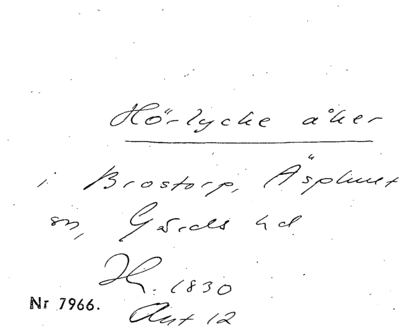 Hörlycke åker
i Brostorp, Äsphult
sn, Gärds hd.
1830
Nr 7966.
Akt 12